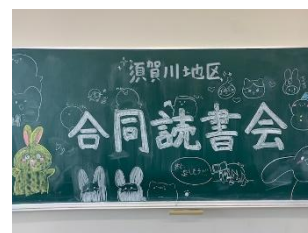 須賀川地区
合同読書会